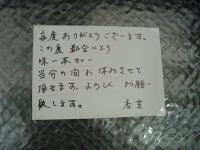 毎度ありがとうございます。
この度 都合により
味一本カレー
当分の間 お休みさせて
頂きます。よろしくお願い
致します。